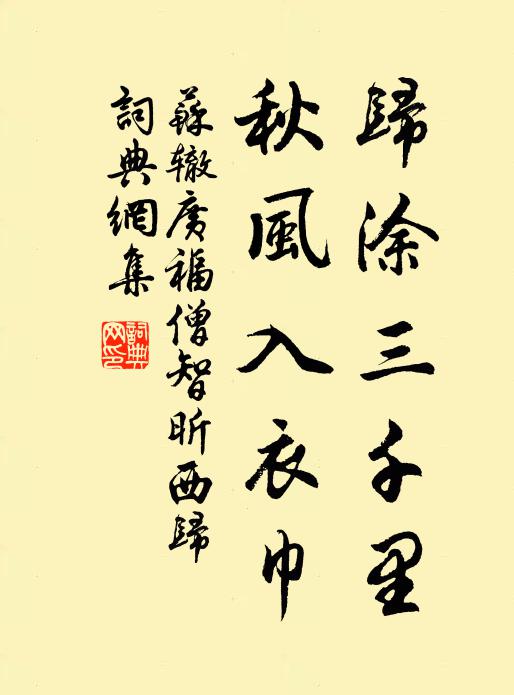 歸涂三千里
秋風入衣巾
蘇辙廣福僧智昕西歸
詞典網集
詞典
网印